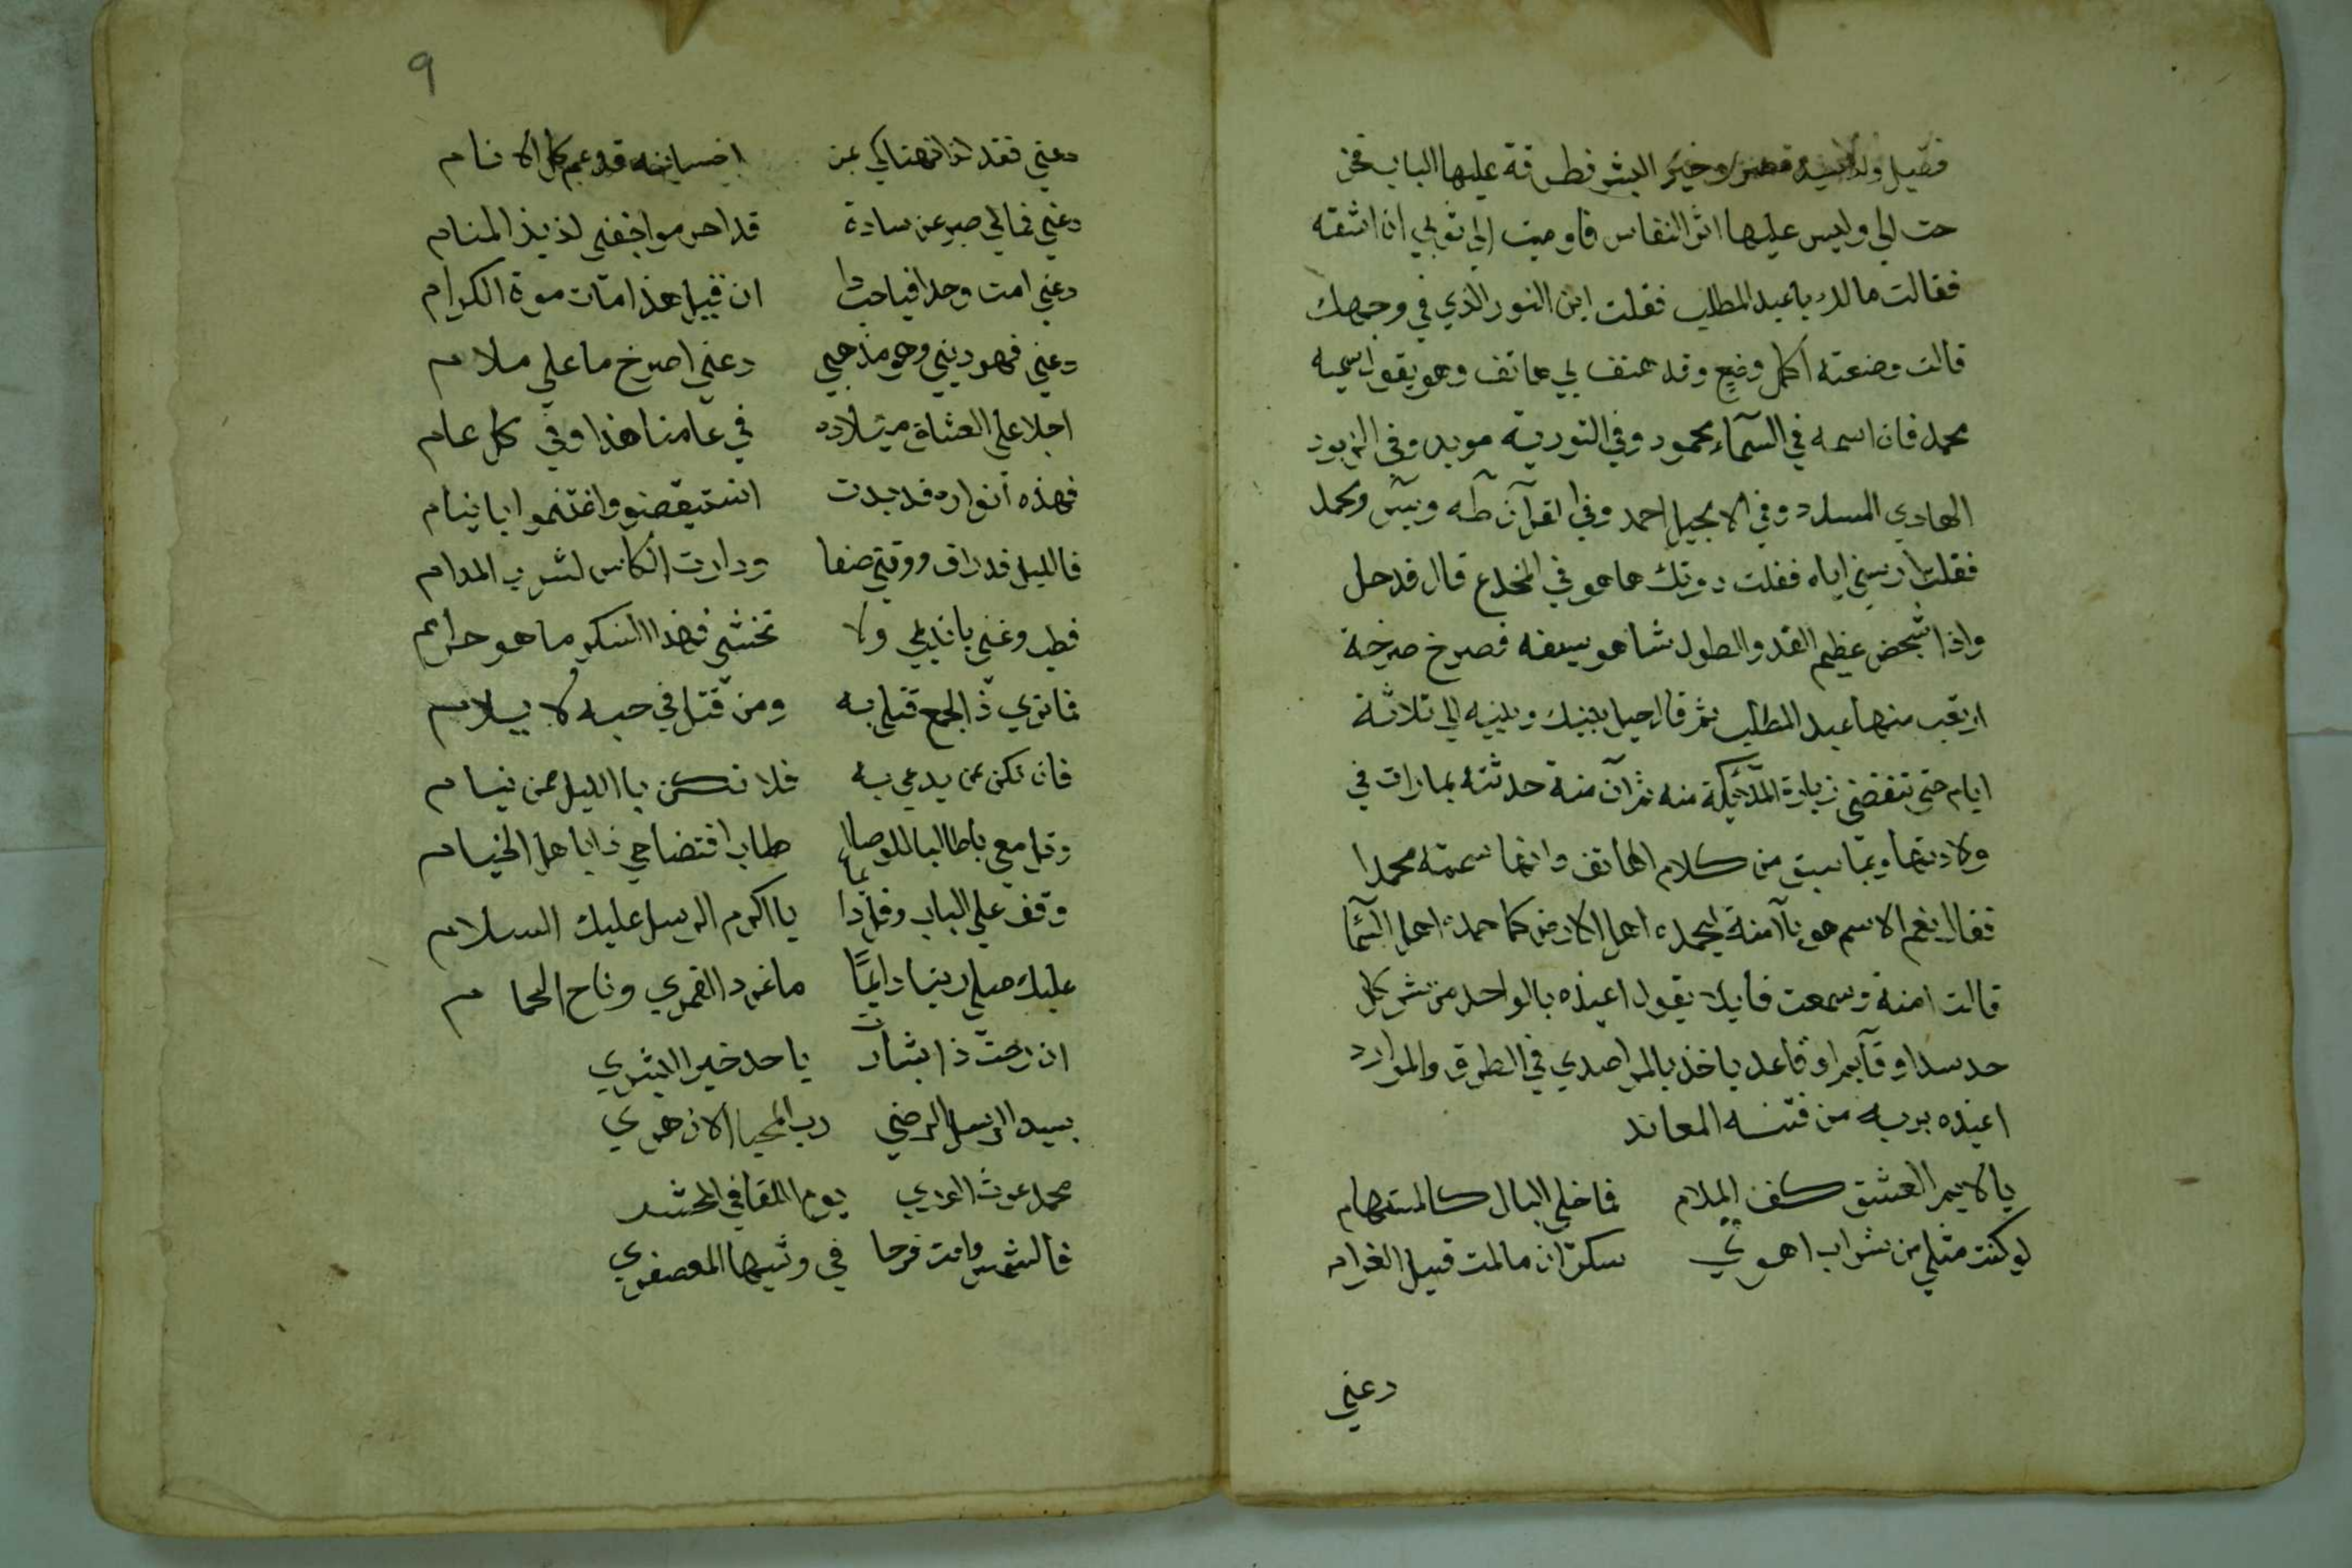 فقيل ولد سيد مضر وخير البشر فطرقة عليها الباب فخر
حت الي وليس عليها اثر النفاس فاوميت الي ثوبي ان اشقه
فقالت مالك يا عبد المطلب فقلت اين النور الذي في وجهك
قالت وضعته اكمل وضع وقد هتف بي هاتف وهو يقول سميه
محمد فان اسمه في السمآء محمود وفي التورية مويد وفي الزبور
الهادي المسدد وفي الانجيل احمد وفي القرآن طه ويس ومحمد
فقلت ارينيي اياه فقلت دونك هاهو في المخدع قال فدخل
واذا شخص عظيم القد والطول شاهر سيفه فصرخ صرخة
ارتعب منها عبد المطلب ثم قال حيل بينك وبينه الي ثلاثة
ايام حتي تنقضي زيارة الملائكة منه ثم آن منة حدثته بما رات في
ولادتها وبما سبق من كلام الهاتف وانها سمته محمدا
فقال نعم الاسم هو يا آمنة ليحمده اهل الارض كما حمده اهل السما
قالت امنة وسمعت قايلا يقول اعيذه بالواحد من شر كل
حد سدا وقآيم او قاعد ياخذ بالمراصدي في الطرق والموارد
اعيذه بربه من فتنه المعاند
يا لايم العشق كف الملام فما خلي البال كالمستهام
لو كنت مثلي من شراب الهوي سكرت ان مالمت قبيل الغرام
دعني
9
دعني فقد لذ لهتاكي بمن احسانه قد عم كل الانام
دعني فمالي صبر عن سادة قد احرموا جفني لذيذ المنام
دعني امت وجدا فيا حبذا ان قيل هذا مات موة الكرام
دعني فهو ديني وهو مذهبي دعني اصرخ ما علي ملام
اجلا علي العشاق ميلاده في عامنا هذا وفي كل عام
فهذه أنواره قد بدت استيقضو واغتنموا يا نيام
فالليل قد راق ووقتي صفا ودارت الكاس لشرب المدام
فطب وغني يا نديمي ولا تخشي فهذا السكر ما هو حرام
فما تري ذ الجمع قتلي به ومن قتل في حبه لا يلام
فان تكن من يدعي به فلا تكن يا الليل ممن نيام
وقل معي يا طالبا للوصال طاب افتضاحي ذا يا هل الخيام
وقف علي الباب وقل دائما يا اكرم الرسل عليك السلام
عليك صلي ربنا دايمًا ما غرد القمري وناح الحمام
ان رحت ذا بشارت يا حد خير البشري
بسيد الرسل الرضي رب المحيا الازهري
محمد غوث الوري يوم اللقا في المحشر
فالشمس وامت فرحا في وشيها المعصفري